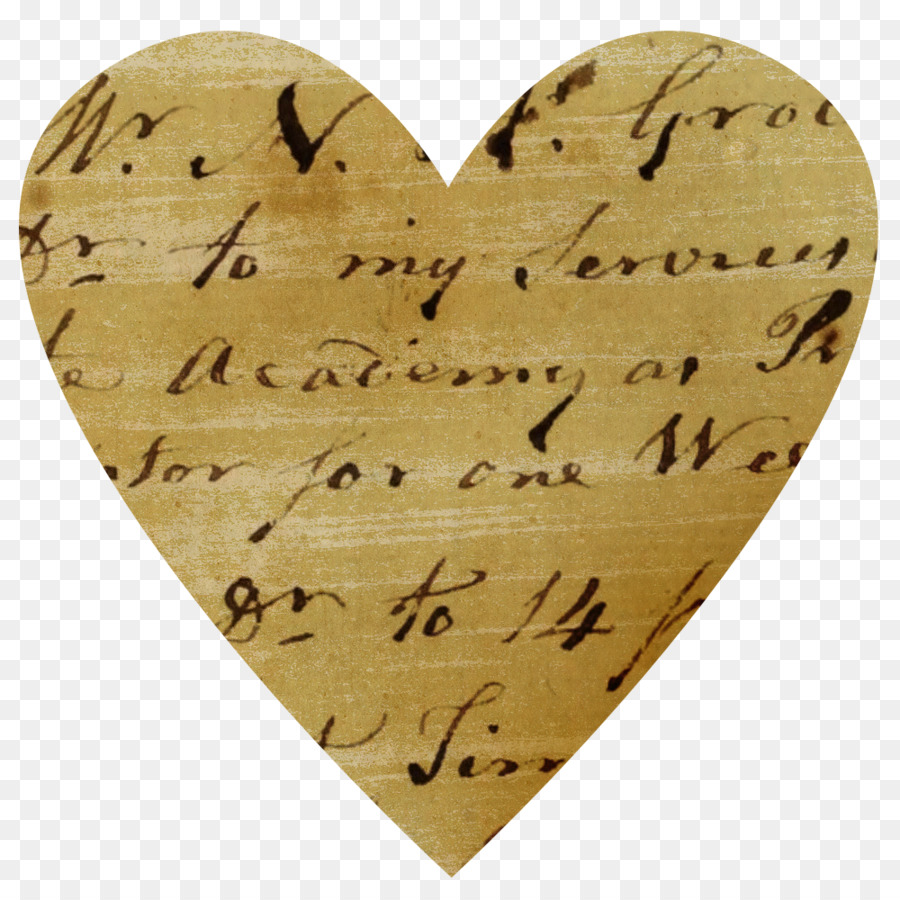 Mr. N. H. Groc
Dr to my Services
te Academy as Pr
ator for one Wee
Dr to 14
Tim